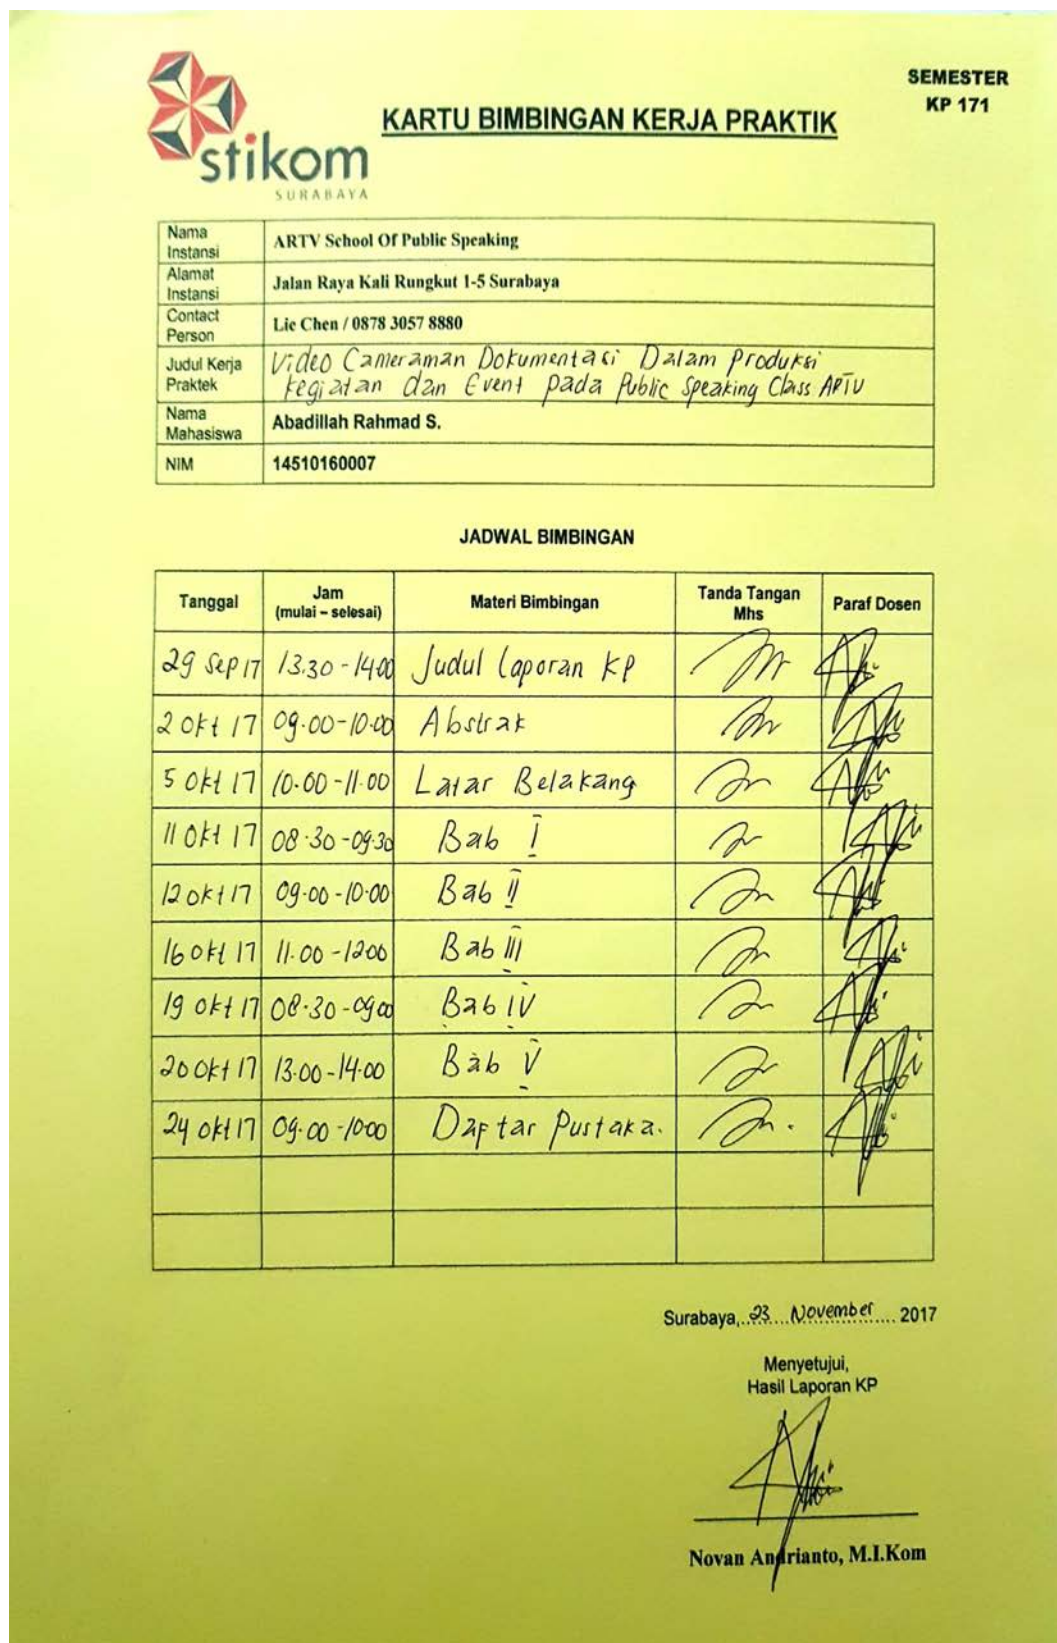 SEMESTER
KP 171
KARTU BIMBINGAN KERJA PRAKTIK
stikom
SURABAYA
Nama Instansi ARTV School Of Public Speaking
Alamat Instansi Jalan Raya Kali Rungkut 1-5 Surabaya
Contact Person Lie Chen / 0878 3057 8880
Judul Kerja Praktek Video Cameraman Dokumentasi Dalam Produksi
Kegiatan dan Event pada Public Speaking Class ARTV
Nama Mahasiswa Abadillah Rahmad S.
NIM 14510160007
JADWAL BIMBINGAN
Tanggal Jam (mulai – selesai) Materi Bimbingan Tanda Tangan Mhs Paraf Dosen
29 Sep 17 13.30 - 14.00 Judul Laporan KP
2 Okt 17 09.00 - 10.00 Abstrak
5 Okt 17 10.00 - 11.00 Latar Belakang
11 Okt 17 08.30 - 09.30 Bab I
12 Okt 17 09.00 - 10.00 Bab II
16 Okt 17 11.00 - 12.00 Bab III
19 Okt 17 08.30 - 09.00 Bab IV
20 Okt 17 13.00 - 14.00 Bab V
24 Okt 17 09.00 - 10.00 Daftar Pustaka.
Surabaya, 23 November 2017
Menyetujui,
Hasil Laporan KP
Novan Andrianto, M.I.Kom